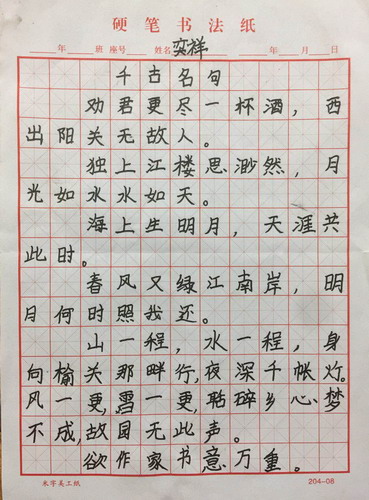 硬笔书法纸
年 班 座号 姓名 奕祥 年 月 日
千古名句
劝君更尽一杯酒，西
出阳关无故人。
独上江楼思渺然，月
光如水水如天。
海上生明月，天涯共
此时。
春风又绿江南岸，明
月何时照我还。
山一程，水一程，身
向榆关那畔行，夜深千帐灯。
风一更，雪一更，聒碎乡心梦
不成，故国无此声。
欲作家书意万重。
米字美工纸 204-06